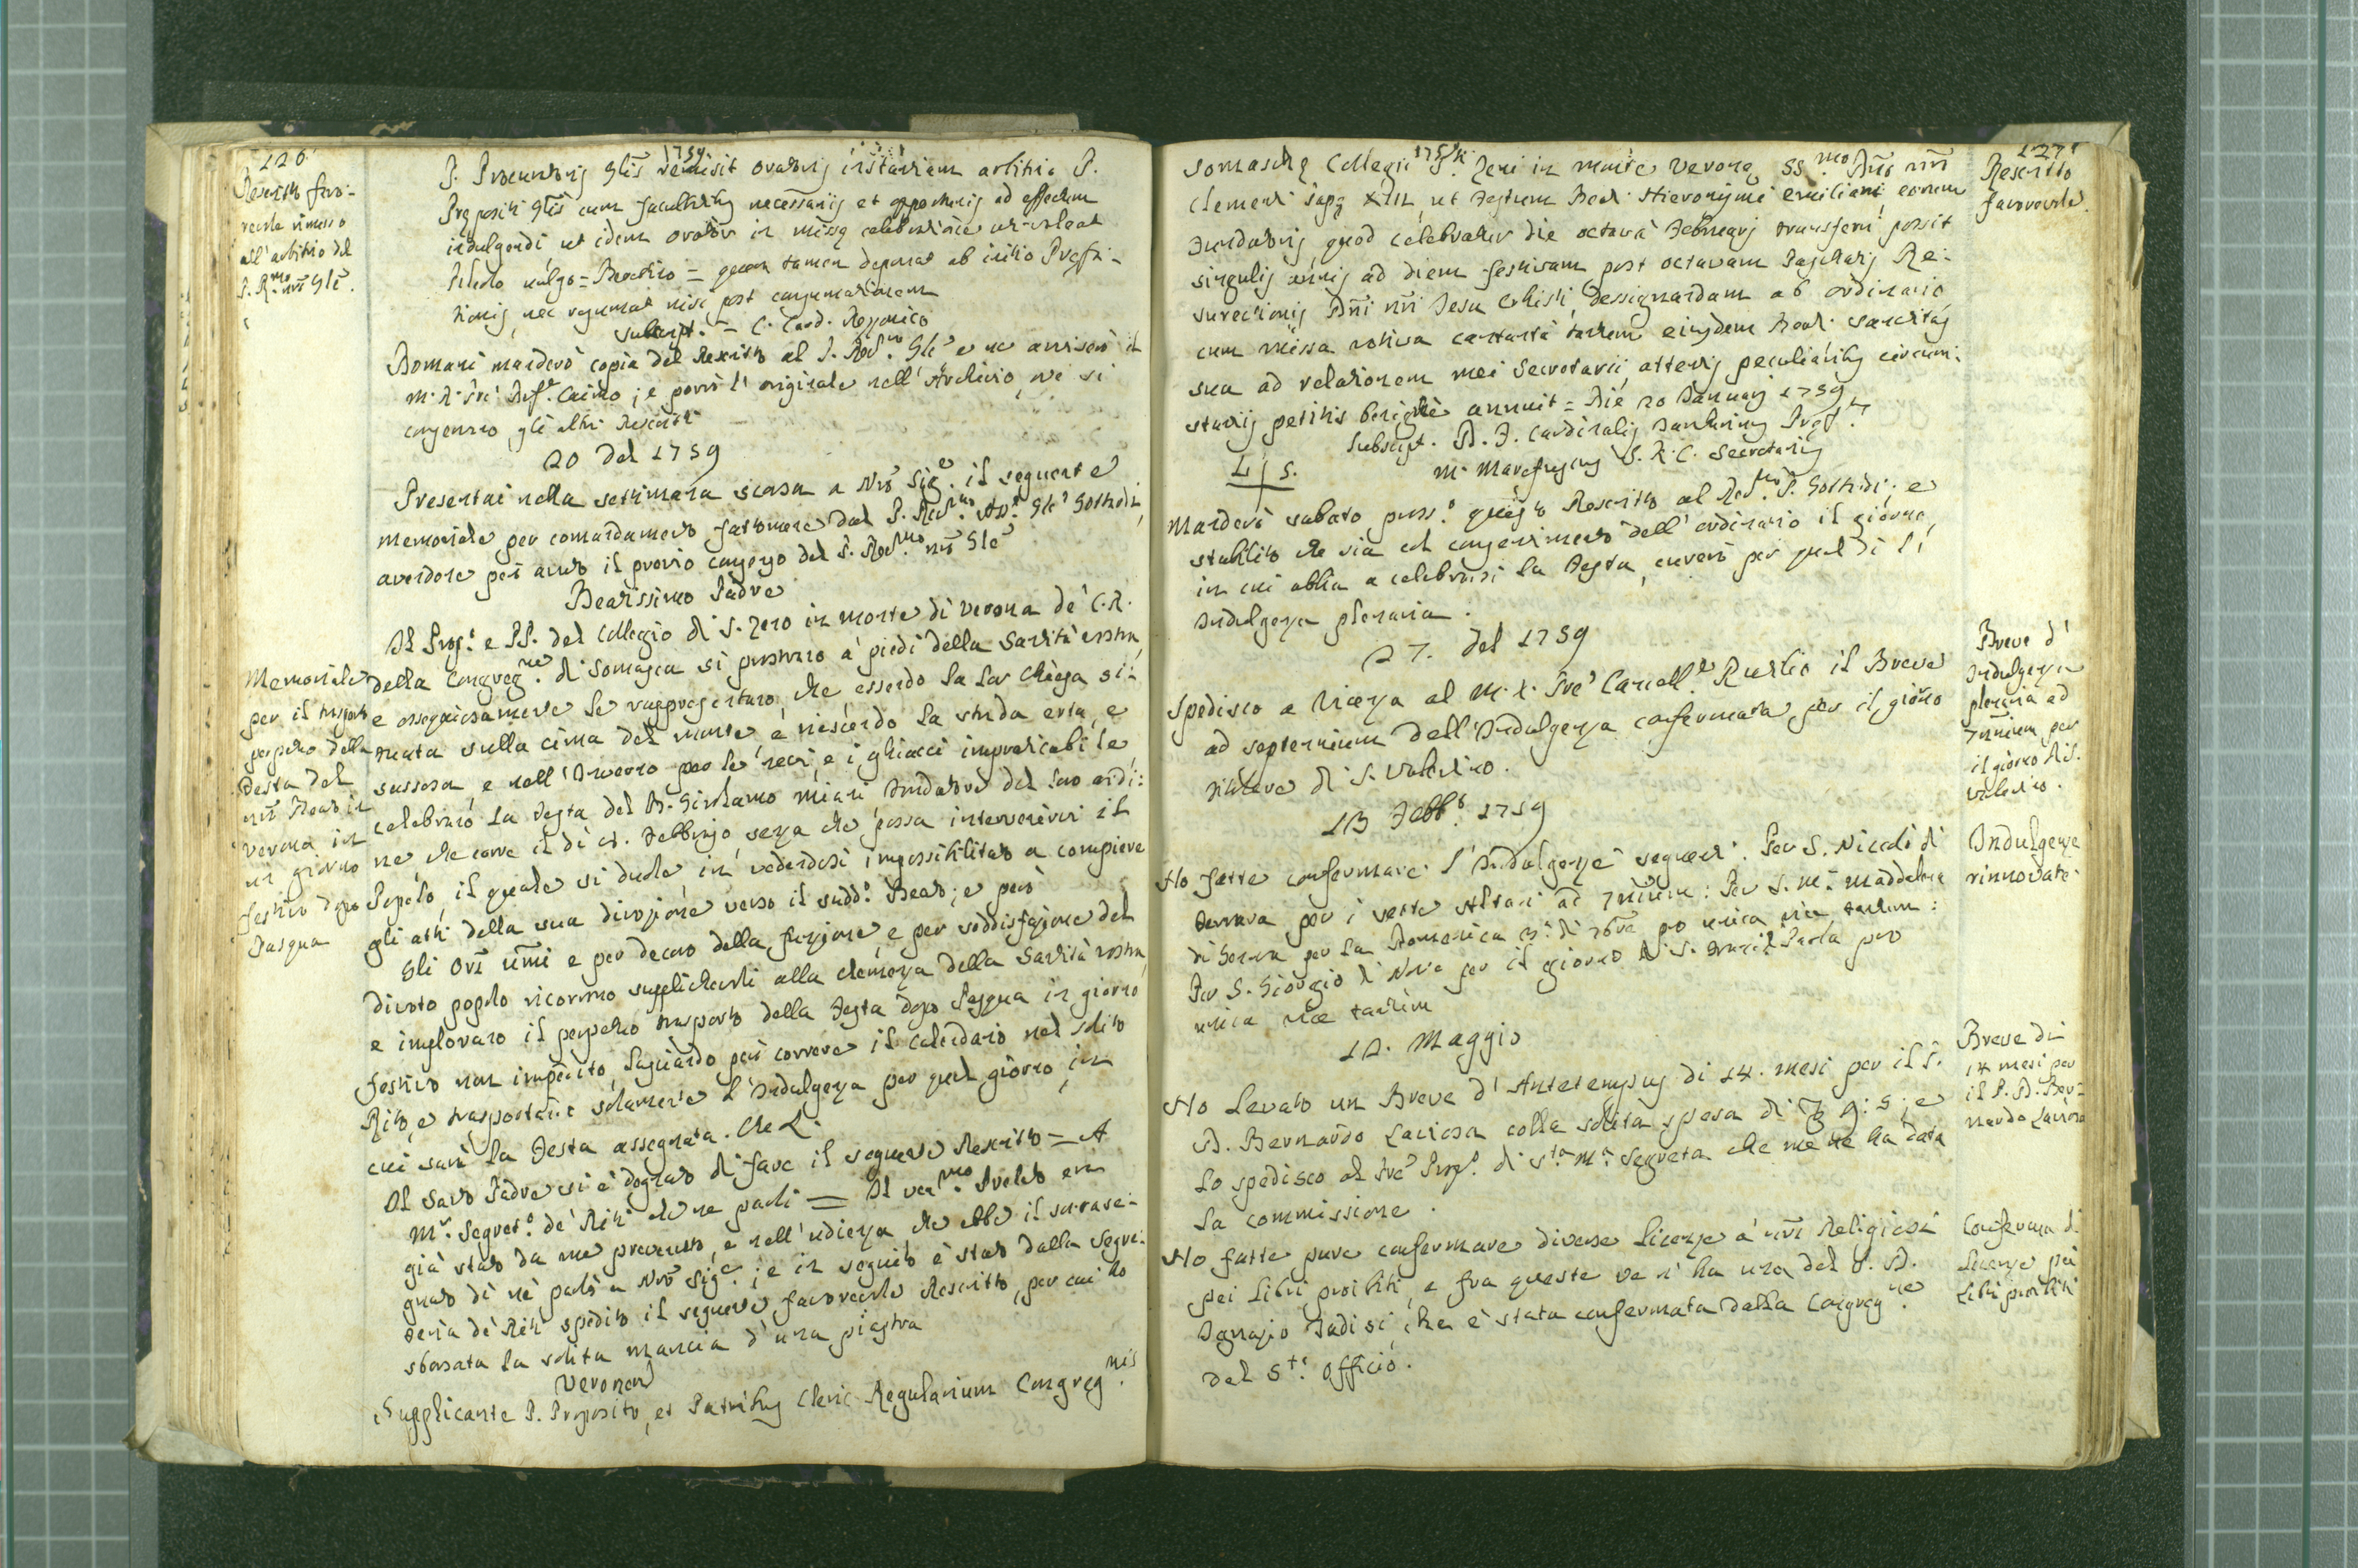 126
1759
Rescritto favo-
revole rimesso
all'arbitrio del
P. R.mo nrõ Glẽ.
P. Procuratoris Glis remisit oratoris instantiam arbitrio P.
Prepositi Glis cum facultatibus necessarijs et opportunis ad effectum
indulgendi ut idem orator in missę celebratione utatur
Pileolo vulgo = Berettino = quem tamen deponat ab initio Prefa-
tionis, nec resumat nisi post consumationem
subscript. = C. Card. Rezzonico
Domani manderò copia del Rescritto al P. Rev.mo Glẽ e ne avviserò il
M. R. Prẽ Caimo; e porrò l'originale nell'Archivio, ove si
conservano gli altri Rescritti
20 del 1759
Presentai nella settimana scorsa a Nrõ Sig.e il seguente
memoriale per comandamento fattomene dal P. Rev.mo Glẽ Gottardi,
avendone però avuto il previo consenso del P. Rev.mo nrõ Glẽ
Beatissimo Padre
Memoriale
per il trasporto
perpetuo della
Festa del
nrõ Beato in
Verona in
un giorno
festivo dopo
Pasqua
Il Prep.o e PP. del Collegio di S. Zeno in monte di Verona de' C. R.
della Congreg.ne di Somasca si prostrano a' piedi della Santità vostra,
e ossequiosamente le rappresentano, che essendo la lor Chiesa si-
tuata sulla cima del monte, e riescendo la strada erta, e
sassosa, e nell'Inverno per le nevi, e i ghiacci impraticabile,
celebrano la Festa del B. Girolamo Miani Fondatore del loro ordi-
ne, che corre il dì 8. Febbrajo, senza che possa intervenirvi il
Popolo, il quale si duole in vedendosi impossibilitato a compiere
gli atti della sua divozione verso il sudd.o Beato; e però
Gli Orĩ ũmi e per decoro della funzione, e per soddisfazione del
divoto popolo ricorrono supplichevoli alla clemenza della Santità vostra,
e implorano il perpetuo trasporto della Festa dopo Pasqua in giorno
festivo non impedito, lasciando però correre il calendario nel solito
Rito, e trasportare solamente l'Indulgenza per quel giorno, in
cui sarà la Festa assegnata. Che L.
Il Santo Padre si è degnato di fare il seguente Rescritto = A
M.r Segret.o de' Riti che ne parli = Il Prelato era
già stato da me prevenuto, e nell'udienza, che ebbe il susse-
guo dì ne parlò a Nrõ Sig.e; e in seguito è stato dalla Segre-
teria de' Riti spedito il seguente favorevole Rescritto, per cui ho
sborsata la solita mancia d'una piastra
Veronen
Supplicante P. Preposito, et Patribus Cleric. Regularium Congreg.nis
1759
127
Rescritto
favorevole.
Somaschę Collegii S. Zeni in monte Veronę, SS.mo Dnõ nrõ
Clementi Papę XIII, ut Festum Beati Hieronymi Emiliani eorum
Fundatoris, quod celebratur die octavâ Februarij transferri possit
singulis annis ad diem festivam post octavam Paschatis Re-
surectionis Dñi nrĩ Jesu Christi, dessignandam ab ordinario,
cum missa votiva cantata tantum eiusdem Beati: sanctitas
sua ad relationem mei Secretarii, attentis peculiaribus circum-
stantijs petitis benignè annuit = Die 20 Januarij 1759
Subscript. D. F. Cardinalis Tamburinus Pręf.s
L S. M. Marefuscus S. R. C. Secretarius
Manderò sabato pross.o questo Rescritto al Rev.mo P. Gottardi; e
stabilito che sia col consentimento dell'ordinario il giorno,
in cui abbia a celebrarsi la Festa, curerò per quel dì l'
Indulgenza plenaria.
27. del 1759
Breve d'
Indulgenza
plenaria ad
7nnium per
il giorno di S.
Valentino.
Spedisco a Vicenza al M. R. Prẽ Cancell.e Ruzlio il Breve
ad septennium dell'Indulgenza confermata per il giorno
di S. Valentino.
13 Febb.o 1759
Indulgenze
rinnovate.
Ho fatte confermare l'Indulgenze seguenti. Per S. Niccolò di
Ferrara per i sette Altari ad 7nnium: Per S. M.a Maddalena
di Genova per la Domenica 3.a di 7bre pro unica vice tantum:
Per S. Giorgio di Novi per il giorno di S. Paola pro
unica vice tantùm
12. Maggio
Breve di
14 mesi per
il P. D. Ber-
nardo Laviosa
Ho levato un Breve d'Antetempus di 14. mesi per il P.
D. Bernardo Laviosa colla solita spesa di 9:5; e
lo spedisco al Prẽ Prep.o di S.ta M.a Segreta che me ne ha data
la commissione.
Conferma di
Licenze pei
Libri proibiti
Ho fatte pure confermare diverse licenze a' nrĩ Religiosi
pei Libri proibiti, e fra queste ve n'ha una del P. D.
Ignazio Tadisi, che è stata confermata dalla Congreg.ne
del S.to Officio.